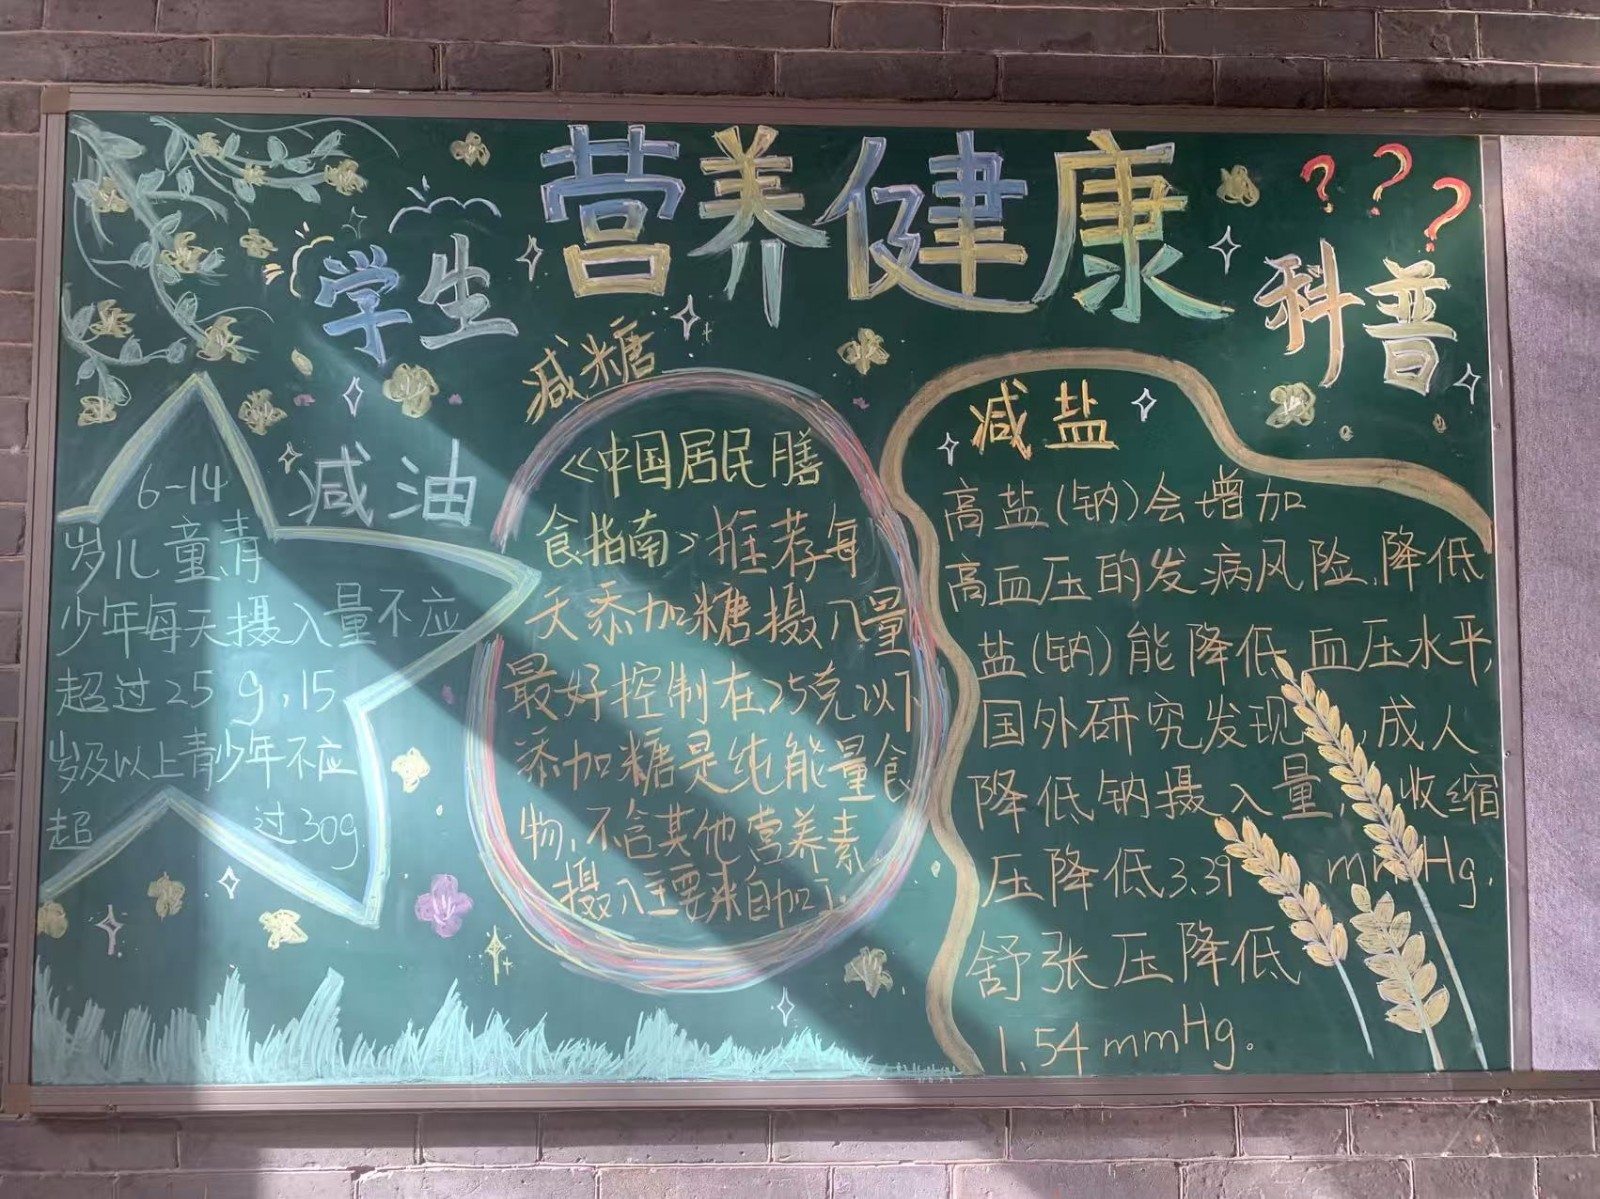 学生
营养健康
科普
???
减油
6-14
岁儿童青
少年每天摄入量不应
超过25g,15
岁及以上青少年不应
超过30g
减糖
《中国居民膳
食指南》推荐每
天添加糖摄入量
最好控制在25克以下
添加糖是纯能量食
物,不含其他营养素
摄入主要来自加工.
减盐
高盐(钠)会增加
高血压的发病风险,降低
盐(钠)能降低血压水平,
国外研究发现,成人
降低钠摄入量,收缩
压降低3.39mmHg.
舒张压降低
1.54mmHg.